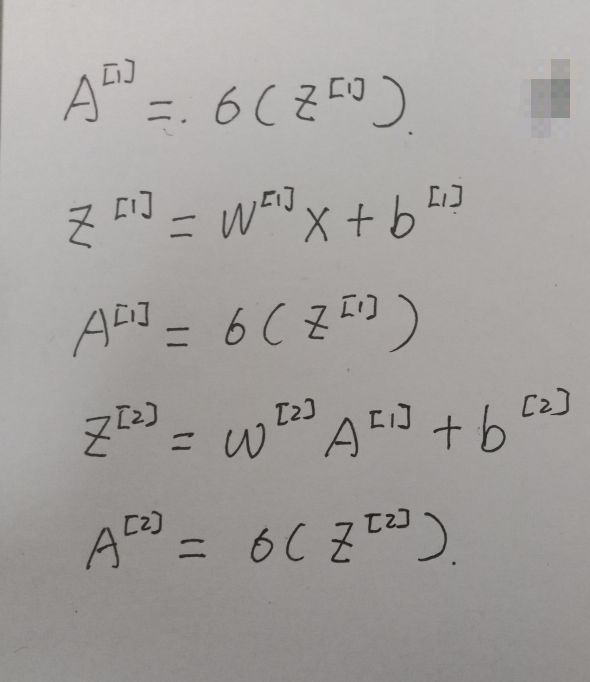 A^[1] = 6(Z^[1]).
Z^[1] = W^[1]X + b^[1]
A^[1] = 6(Z^[1])
Z^[2] = W^[2]A^[1] + b^[2]
A^[2] = 6(Z^[2]).